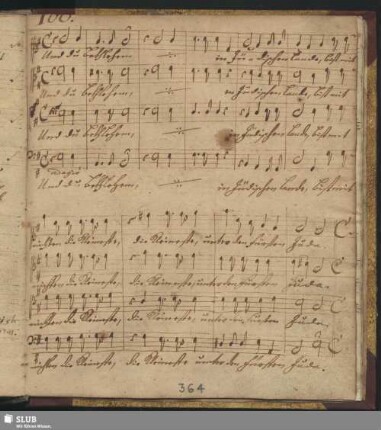 100.
Und du Bethlehem im Jüdischen Lande, bist mit
Und du Bethlehem, im Jüdischen Lande, bist mit
Und du Bethlehem, im Jüdischen Lande, bist mit
Basso
Und du Bethlehem, im Jüdischen Lande, bist mit
nichten die kleineste, die kleineste, unter den Fürsten Juda.
nichten die kleineste, die kleineste, unter den Fürsten Juda.
nichten die kleineste, die kleineste, unter den Fürsten Juda.
nichten die kleineste, die kleineste unter den Fürsten Juda.
364
SLUB
Wir führen Wissen.